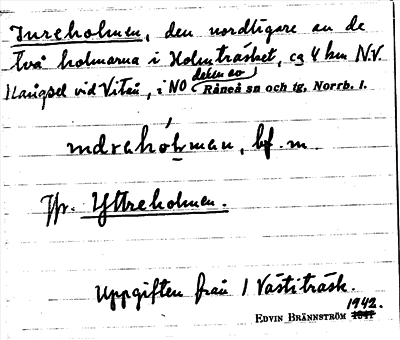 Inreholmen, den nordligare av de
två holmarna i Holmträsket, ca 4 km N.V.
Långsel vid Vitån, i NO delen av Råneå sn och tg, Norrb. l.
ındrəhólman, bf. m.
Jfr. Yttreholmen.
Uppgiften från / Västiträsk.
EDVIN BRÄNNSTRÖM 1942.